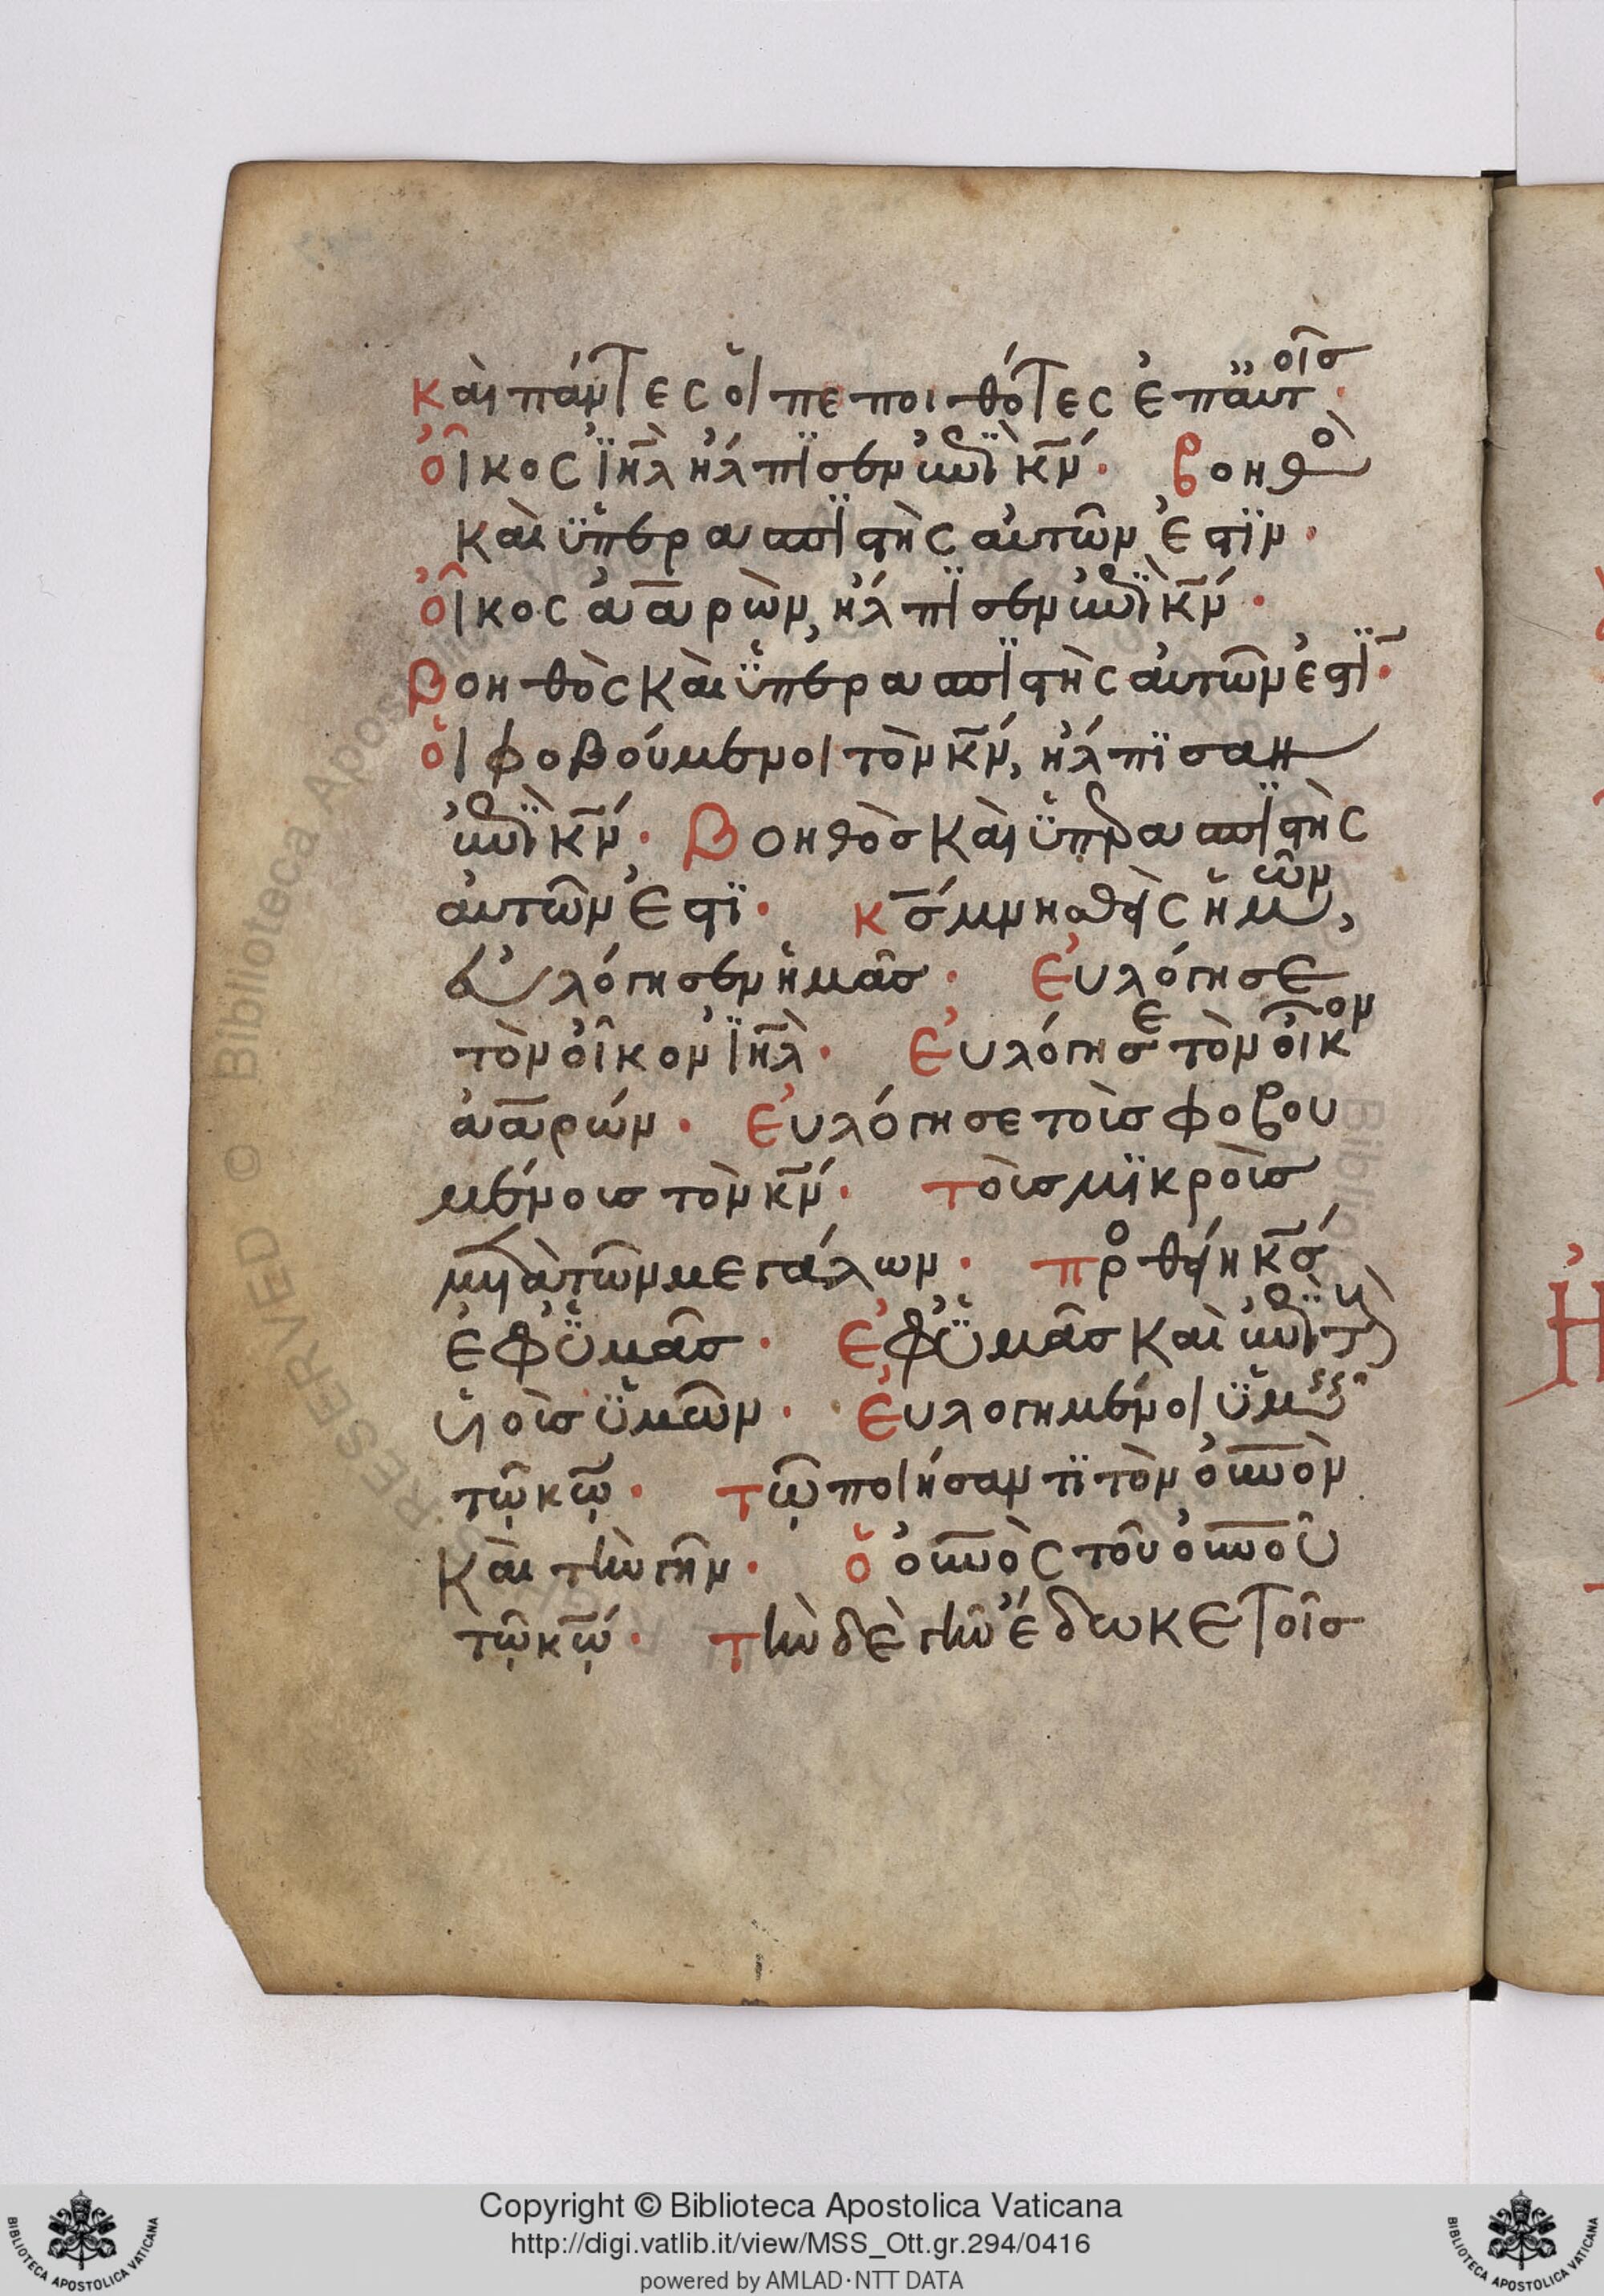 καὶ πάντες οἱ πεποιθότες ἐπ αὐτοῖς·
ὀῖκος ἰηλ ἤλπισεν ἐπὶ κν· βοηθὸ
καὶ ὑπερασπιστὴς αὐτῶν ἐστιν·
ὀῖκος ἀαρὼν, ἤλπισεν ἐπὶ κν·
Βοηθὸς καὶ ὑπερασπιστὴς αὐτῶν ἐστι·
ὁι φοβούμενοι τὸν κν, ἤλπισαν
ἐπὶ κν· Βοηθὸσ καὶ ὑπερασπιστὴς
αὐτῶν ἐστι· κσ μνησθεὶς ἡμῶν,
ἐυλόγησεν ἡμᾶσ· Ἐυλόγησε
τὸν οἶκον ἰηλ· Ἐυλόγησε τὸν οἶκον
ἀαρών· Ἐυλόγησε τοὺσ φοβου
μένουσ τὸν κν· τοὺσ μικροὺσ
μετὰ τῶν μεγάλων· προσθείη κσ
ἐφ ὑμᾶσ· Ἐφ ὑμᾶσ καὶ ἐπὶ τοὺσ
υἱοὺσ ὑμῶν· Ἐυλογημένοι ὑμεῖσ
τῷ κῳ· τῷ ποιήσαντι τὸν οὐνὸν
Καὶ τὴν γῆν· ὁ οὐνὸς τοῦ οὐνοῦ
τῷ κῳ· τὴν δὲ γῆν ἔδωκε τοῖσ
Copyright © Biblioteca Apostolica Vaticana
http://digi.vatlib.it/view/MSS_Ott.gr.294/0416
powered by AMLAD·NTT DATA
BIBLIOTECA APOSTOLICA VATICANA
BIBLIOTECA APOSTOLICA VATICANA